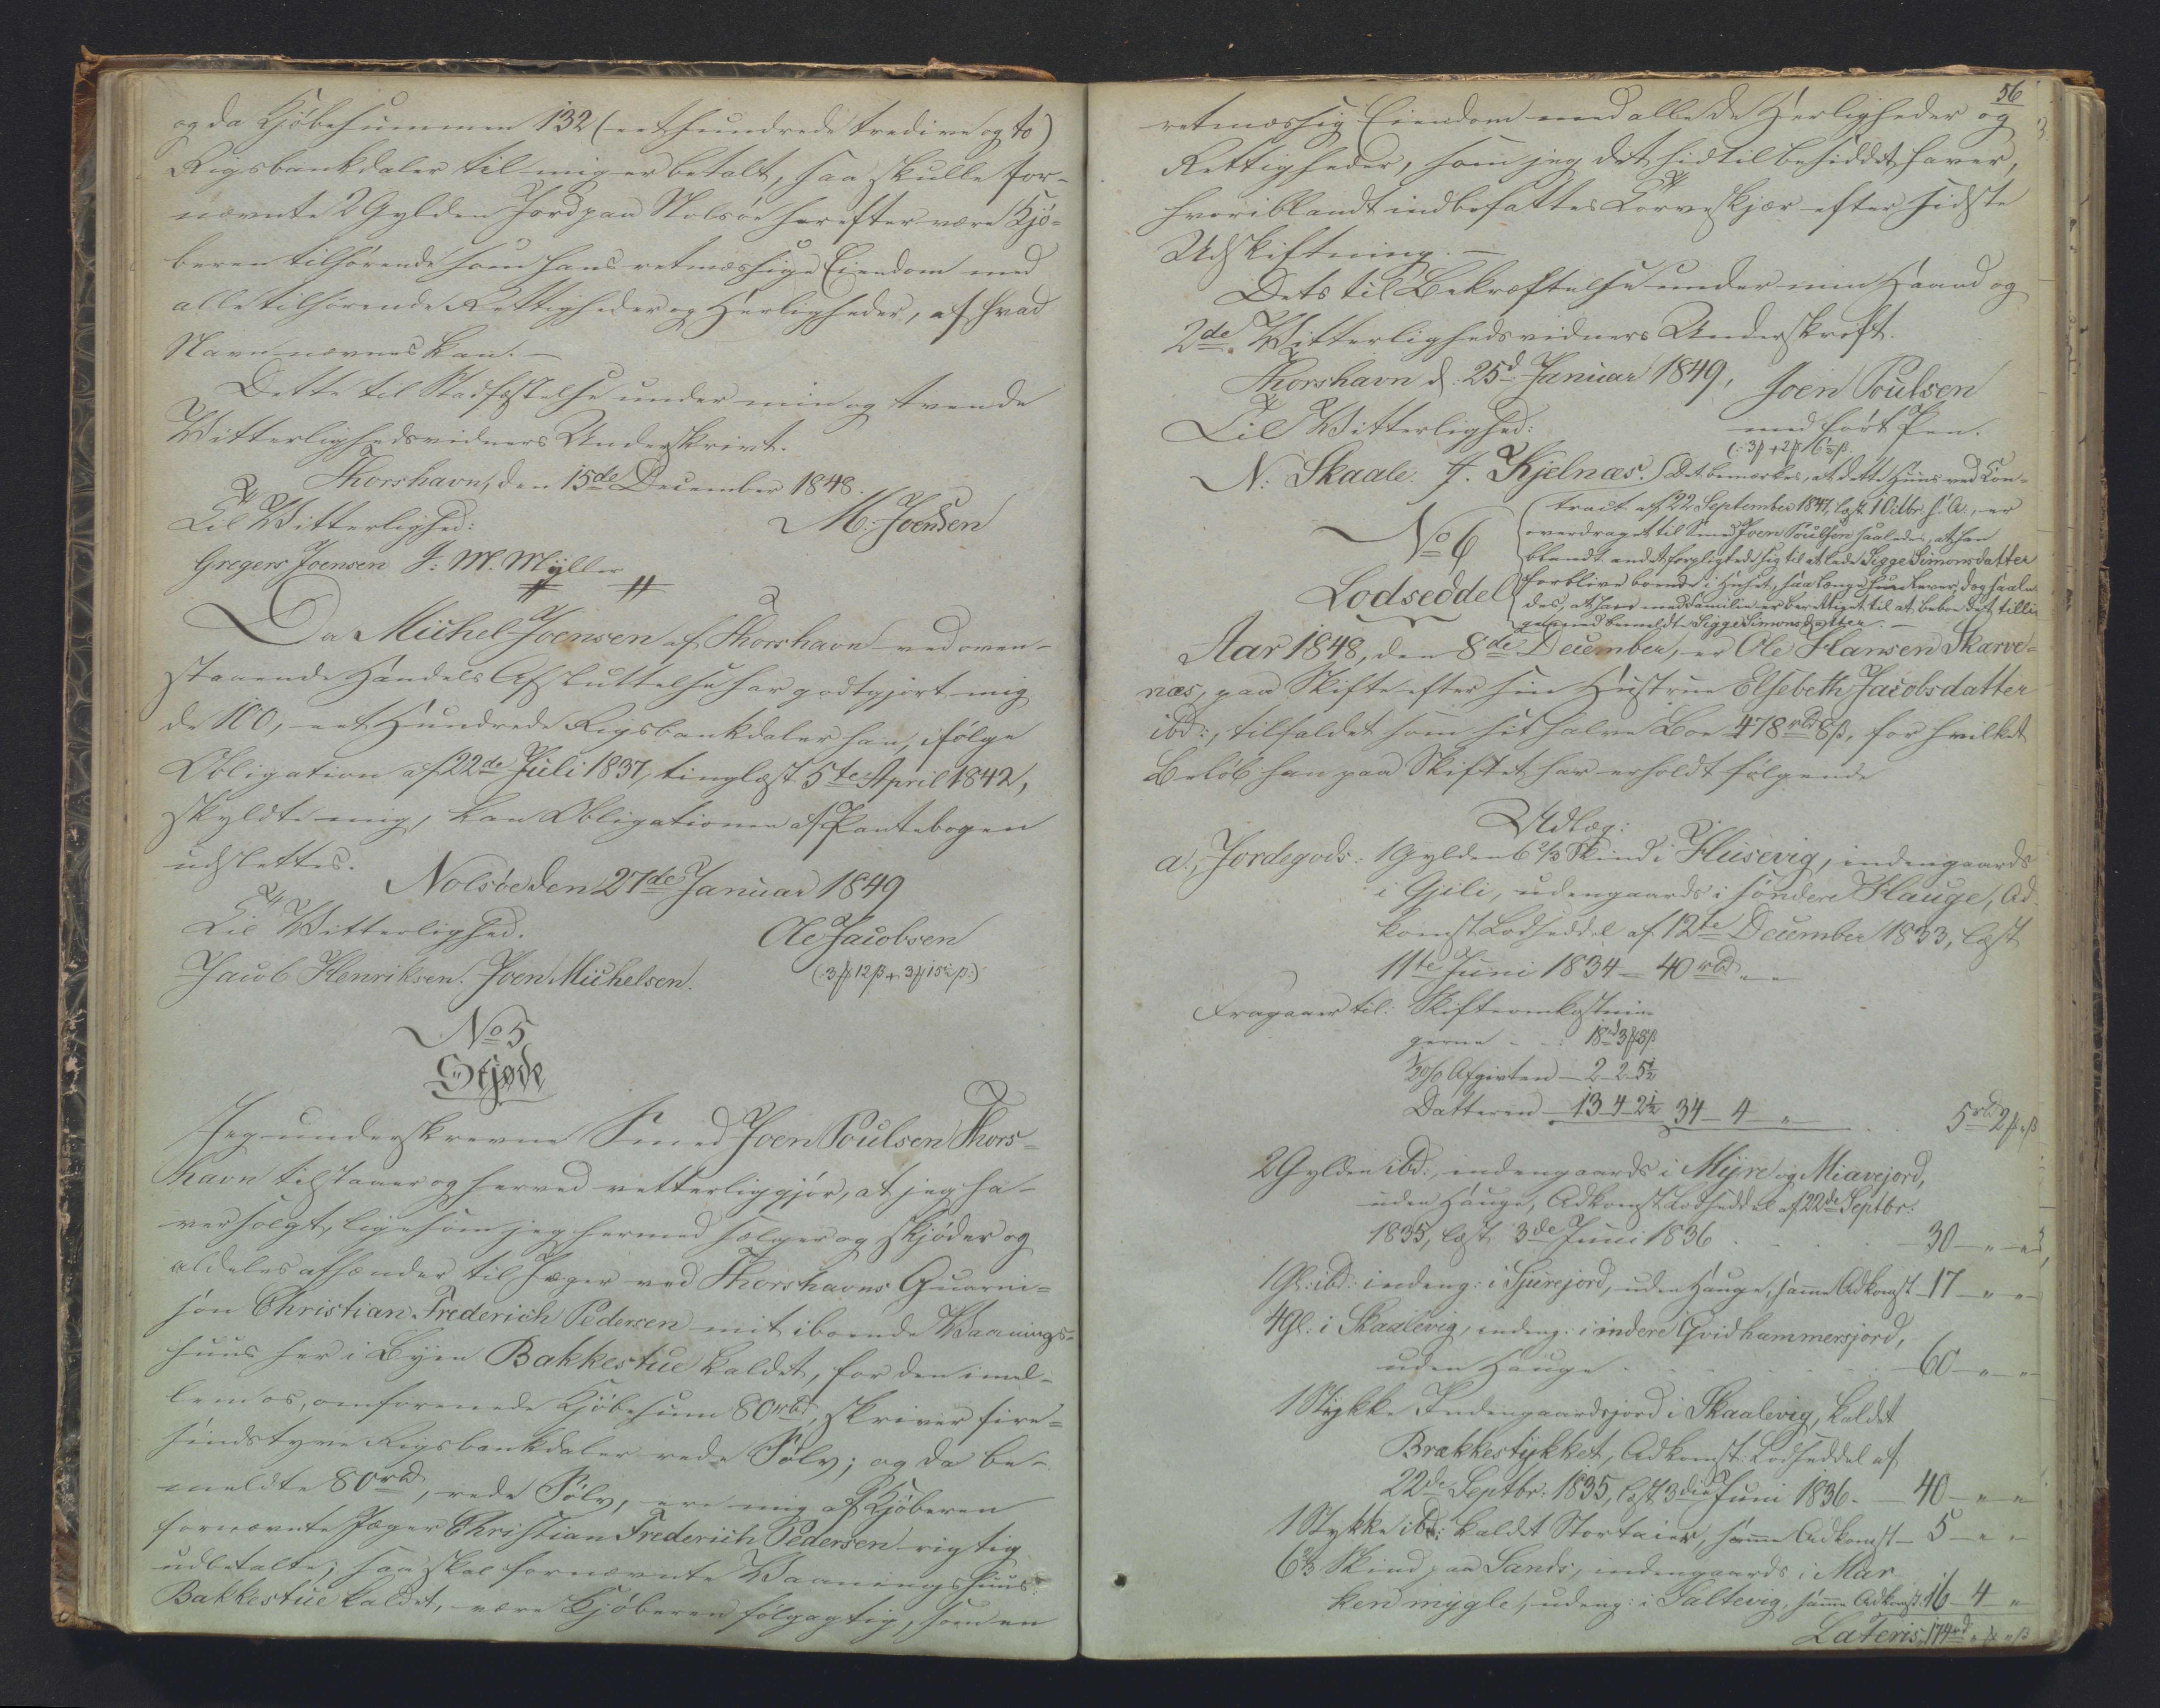 og da Kjöbesummen 132 (eet hundrede tredive og to)
Rigsbankdaler til mig er betalt, saa skulle for-
nævnte 2 Gylden Jord paa Nolsöe herefter være Kjö-
beren tilhörende som hans retmæssige Eiendom med
alle tilhörende Rettigheder og Herligheder, af hvad
Navn nævnes kan. —
Dette til Stadfæstelse under min og tvende
Vitterlighedsvidners Underskrivt.
Thorshavn, den 15de December 1848.
Til Vitterlighed: M. Joensen
Gregers Joensen J. M. Mÿller
Da Michel Joensen af Thorshavn ved oven-
staaende Handels Afsluttelse har godtgjort mig
de 100, eet Hundrede Rigsbankdaler han, ifölge
Obligation af 22de Juli 1837, tinglæst 5te April 1842,
skyldte mig, kan Obligationen af Pantebogen
udslettes.
Nolsöe den 27de Januar 1849
Til Vitterlighed. Ole Jacobsen
Jacob Henriksen. Joen Michelsen. (3 ₻ 12 ß + 3 ₻ 15½ ß)
No 5
Skjöde
Jeg underskrevne Smed Joen Poulsen Thors-
havn tilstaaer og herved vitterliggjör, at jeg ha-
ver solgt, ligesom jeg hermed sælger og skjöder og
aldeles afhænder til Jæger ved Thorshavns Guarni-
son Christian Frederich Pedersen mit iboende Vaanings-
huus her i Byen Bakkestue kaldet, for den imel-
lem os omforenede Kjöbesum 80 rbd, skriver fire-
sindstyve Rigsbankdaler rede Sölv; og da be-
meldte 80 rbd, rede Sölv, ere mig af Kjöberen
fornævnte Jæger Christian Frederich Pedersen rigtig
udbetalte; saa skal fornævnte Vaaningshuus
Bakkestue kaldet, være Kjöberen fölgagtig, som en
56
retmæssig Eiendom med alle de Herligheder og
Rettigheder, som jeg det hidtil besiddet haver,
hvoriblandt indbefattes Torveskjær efter sidste
Udskiftning. —
Dets til Bekræftelse under min Haand og
2de Vitterlighedsvidners Underskrift.
Thorshavn d. 25d Januar 1849, Joen Poulsen
Til Vitterlighed: med fört Pen.
(: 3 ₻ + 2 ₻ 6½ ß
N: Skaale. J. Kjelnæs. Det bemærkes, at dette Huus ved Con-
tract af 22 September 1847, læst 1 Octbr. s. A., er
No 6 overdraget til Smed Joen Poulsen saaledes, at han
blandt andet forpligted sig til at lade Sigge Simonsdatter
Lodseddel forblive boende i Huset, saalænge hun lever, dog saale-
des, at han med Familie er berettiget til at beboe det tilli-
gemed bemeldte Sigge Simonsdatter. —
Aar 1848, den 8de December, er Ole Hansen Skarve-
næs, paa Skifte efter sin Hustrue Elsebeth Jacobsdatter
ibd:, tilfaldet som sit halve Boe 478 rbd 8 ß, for hvilket
Belöb han paa Skiftet har erholdt fölgende
Udlæg:
a., Jordegods: 1 Gylden 6 2/3 Skind i Husevig, indengaards
i Gjili, udengaards i söndere Hauge, Ad-
komst Lodseddel af 12te December 1833, læst
11te Juni 1834 — 40 rbd „ „
Fragaaer til: Skifteomkostnin-
gerne — : 18 rd 3 ₻ 8 ß
½ o/o Afgivten — 2 - 2 - 5½
Datteren — 13 - 4 - 2½ 34 — 4 — „ — 5 rbd 2 ₻ „ ß
2 Gylden ibd:, indengaards i Mÿre og Miavejord,
uden Hauge, Adkomst Lodseddel af 22de Septbr.
1835, læst 3de Juni 1836 30 — „ — „
1 Gl: ibd: indeng: i Sjurejord, uden Hauge, samme Adkomst — 17 — „ „
4 Gl: i Skaalevig, indeng: i indere Qvidhammersjord,
uden Hauge 60 — „ — „
1 Stykke Indengaardsjord i Skaalevig, kaldet
Brækkestÿkket, Adkomst: Lodseddel af
22de Septbr: 1835, læst 3die Juni 1836. — 40 — „ — „
1 Stykke ibd: kaldet Stortaier, samme Adkomst — 5 — „ „
6 2/3 Skind paa Sands, indengaards i Mar-
ken mÿgle, udeng: i Saltevig, samme Adkomst. 16 — 4 — „
Lateris, 174 rd „ ₻ „ ß